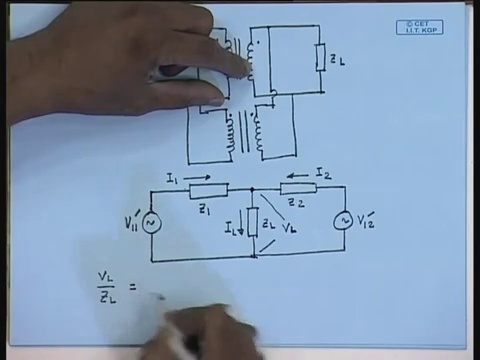 © CET
I.I.T. KGP
Z_L
I₁
I₂
Z₁
Z₂
V₁₁'
I_L
Z_L
V_L
V₁₂'
V_L
/ Z_L =